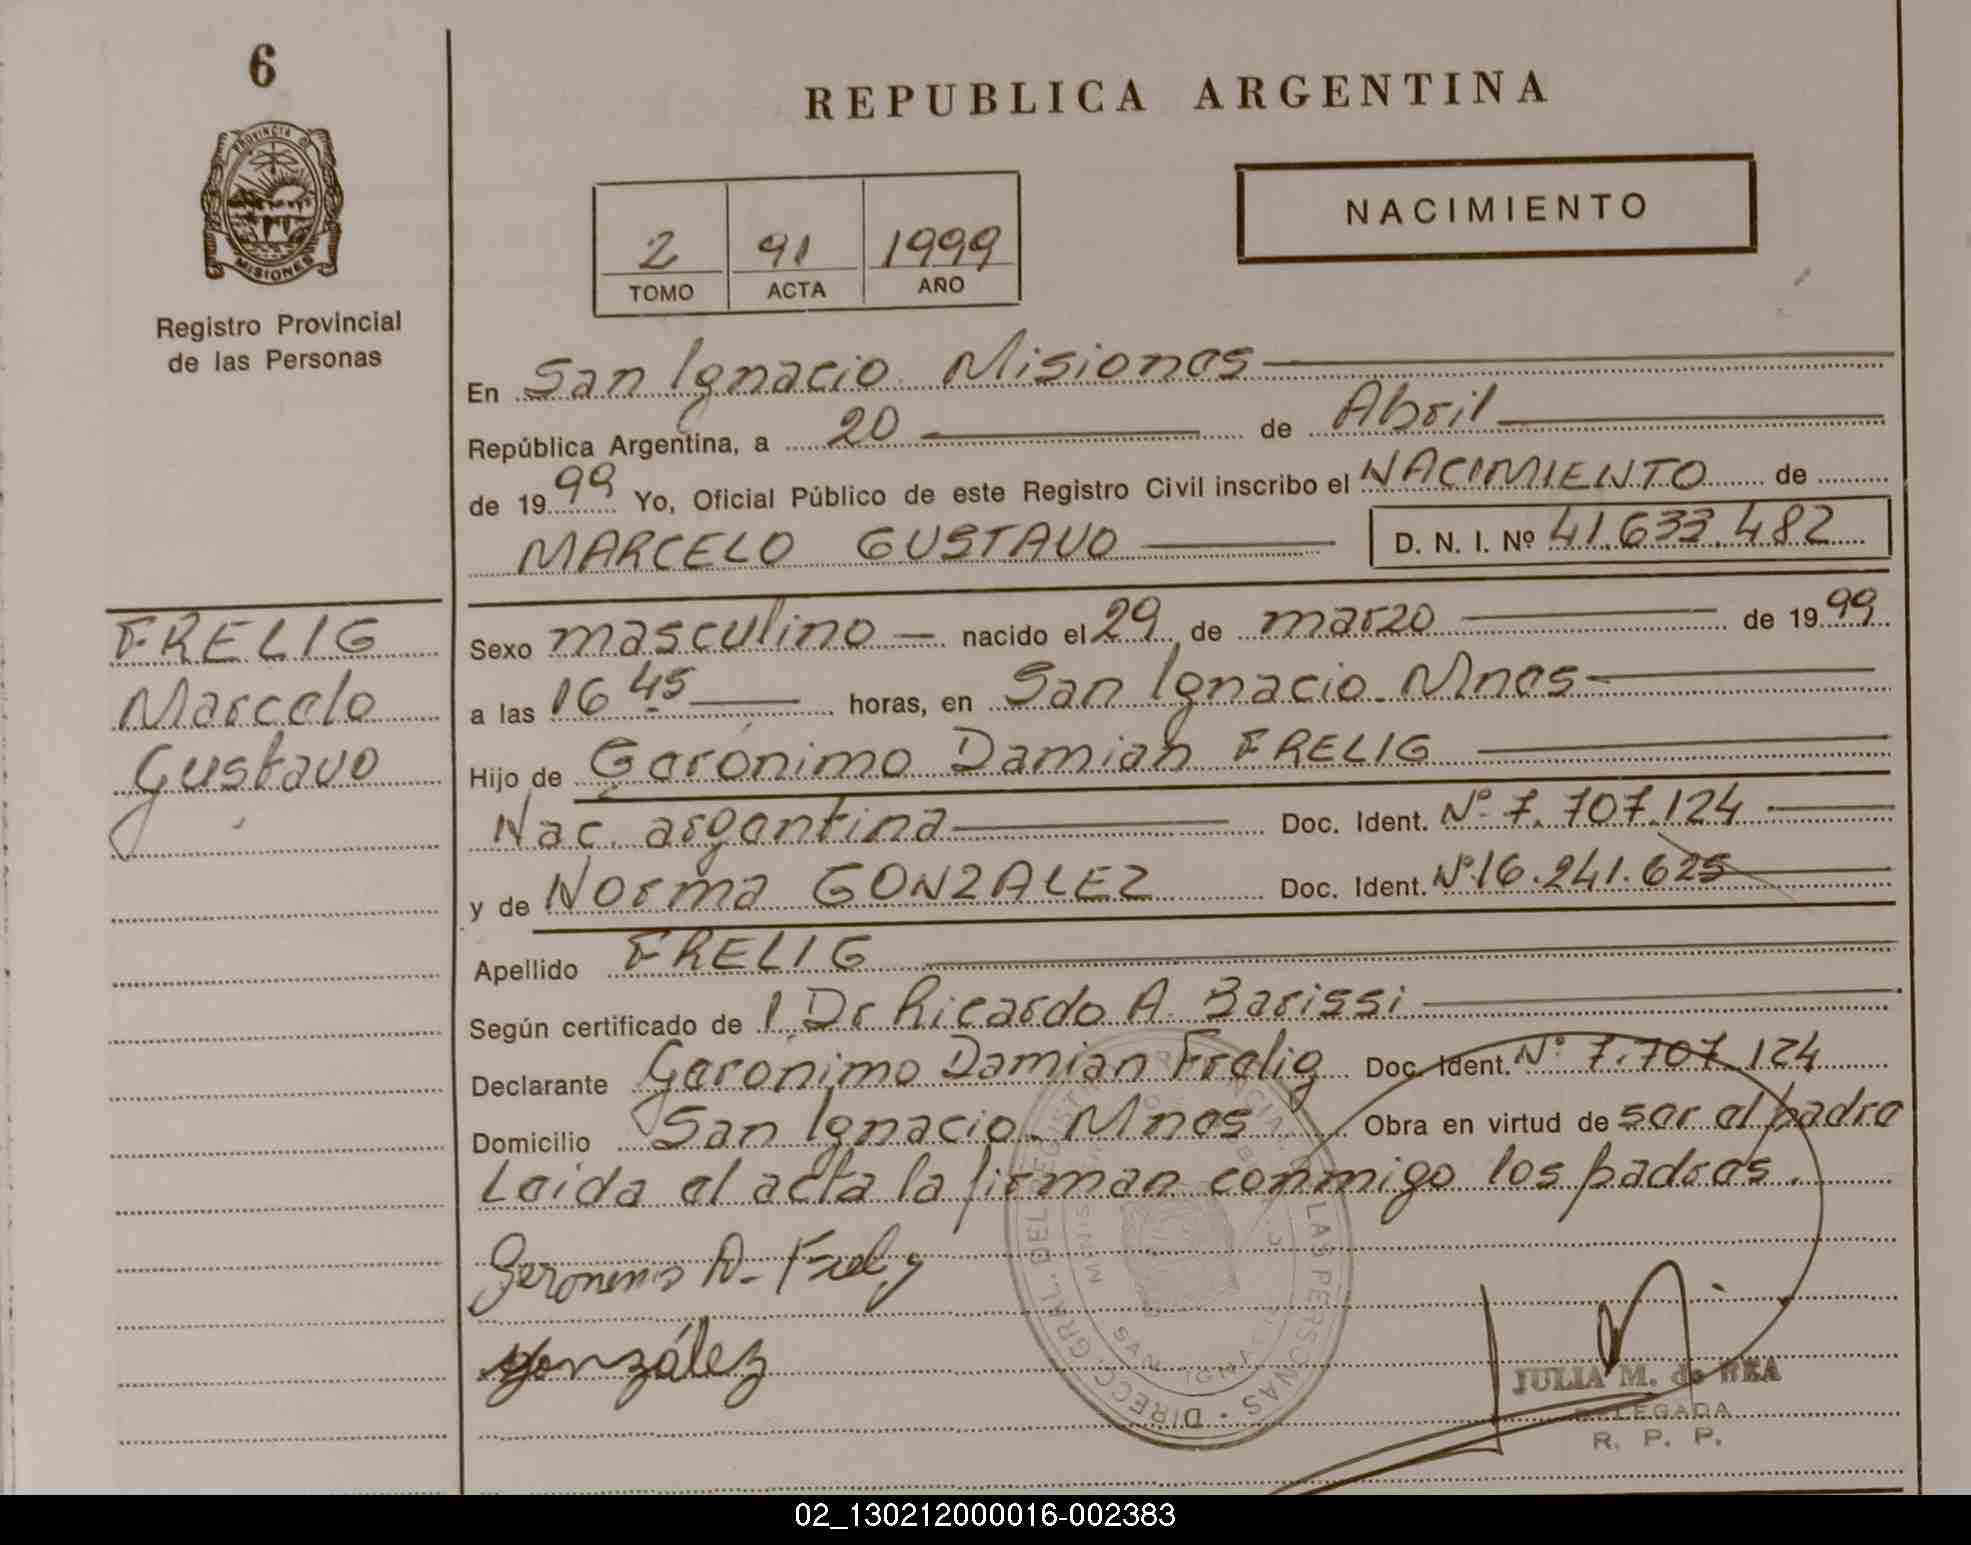 6
PROVINCIA DE
MISIONES
Registro Provincial
de las Personas
REPUBLICA ARGENTINA
2 91 1999
TOMO ACTA AÑO
NACIMIENTO
En San Ignacio Misiones
República Argentina, a 20 de Abril
de 1999 Yo, Oficial Público de este Registro Civil inscribo el NACIMIENTO de
MARCELO GUSTAVO D. N. I. Nº 41.633.482
FRELIG
Marcelo
Gustavo
Sexo masculino nacido el 29 de marzo de 1999
a las 16 45 horas, en San Ignacio Mnes
Hijo de Gerónimo Damian FRELIG
Nac. argentina Doc. Ident. Nº 7.707.124
y de Norma GONZALEZ Doc. Ident. Nº 16.241.625
Apellido FRELIG
Según certificado de l Dr Ricardo A. Barissi
Declarante Gerónimo Damian Frelig Doc. Ident. Nº 7.707.124
Domicilio San Ignacio Mnes Obra en virtud de ser el padre
Leida el acta la firman conmigo los padres.
Geronimo D. Frelig
González
DIRECC. GRAL. DEL REGISTRO PROVINCIAL DE LAS PERSONAS
SAN IGNACIO
JULIA M. de REA
DELEGADA
R. P. P.
02_130212000016-002383